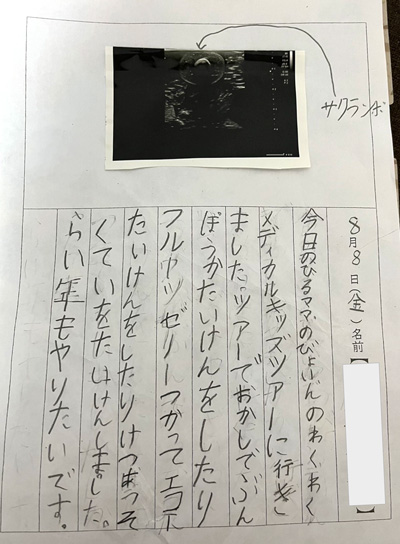 サクランボ
8月8日(金)名前【 】
今日のひるママのびょいんのわくわく
メディカルキッズツアーに行き
ました。ツアーでおかしでぶん
ぼうかたいけんをしたり
フルウツゼリーつかってエコー
たいけんをしたりけつあっそ
くていをたいけんしました。
らい年もやりたいです。